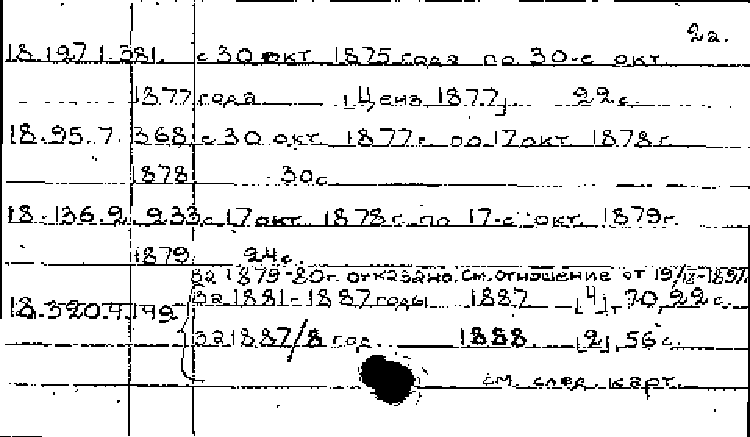 2а.
18.127.1.381. с 30 окт. 1875 года по 30-е окт.
1877 года [Ценз. 1877] 22 с.
18.95.7.368 с 30 окт. 1877 г. по 17 окт. 1878 г.
1878 30 с.
18.136.9.233 с 17 окт. 1878 г. по 17-е окт. 1879 г.
1879. 24 с.
За 1879-80 г. отказано. см. отношение от 19/
18.320.4.149 за 1881-1887 годы 1887 [4], 70, 22 с.
за 1887/8 год. 1888. [2], 56 с.
см. след. карт.